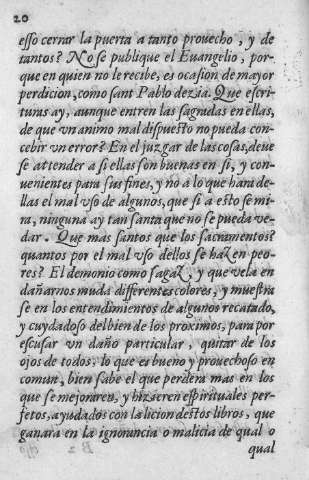 20
esso cerrar la puerta a tanto prouecho, y de
tantos? No se publique el Euangelio, por-
que en quien no le recibe, es ocasion de mayor
perdicion, como sant Pablo dezia. Que escri-
turas ay, aunque entren las sagradas en ellas,
de que vn animo mal dispuesto no pueda con-
cebir vn error? En el juzgar de las cosas, deue
se attender a si ellas son buenas en si, y con-
uenientes para sus fines, y no à lo que hara de-
llas el mal vso de algunos, que si a esto se mi-
ra, ninguna ay tan santa que no se pueda ve-
dar. Que mas santos que los sacramentos?
quantos por el mal vso dellos se hazen peo-
res? El demonio como sagaz, y que vela en
dañarnos muda differentes colores, y muestra
se en los entendimientos de algunos recatado,
y cuydadoso del bien de los proximos, para por
escusar vn daño particular, quitar de los
ojos de todos, lo que es bueno y prouechoso en
comun, bien sabe el que perdera mas en los
que se mejoraren, y hizieren espirituales per-
fetos, ayudados con la licion destos libros, que
ganara en la ignorancia o malicia de qual o
qual